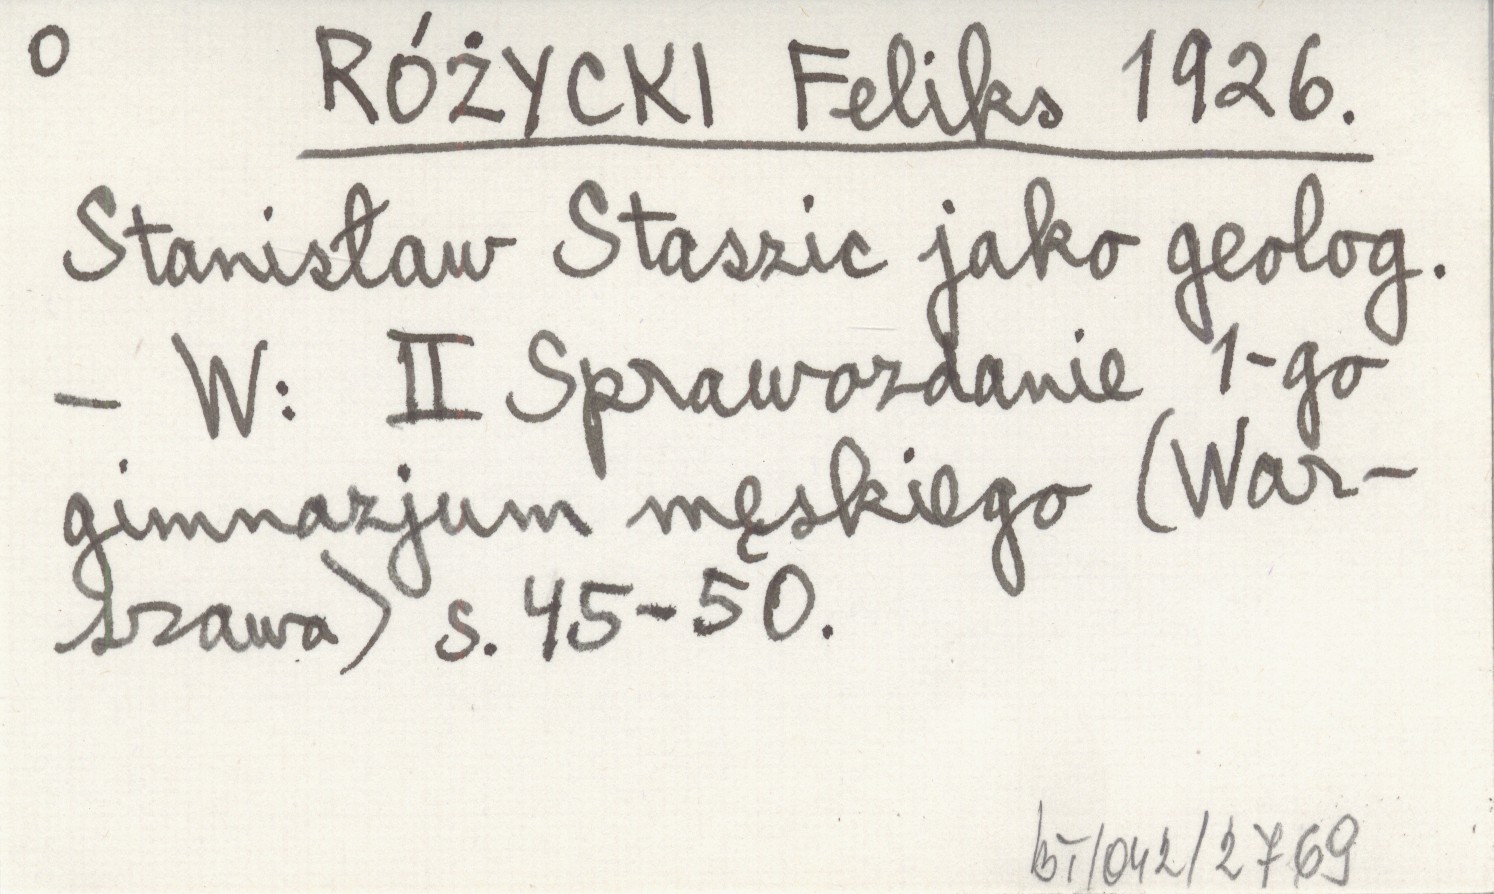 O RÓŻYCKI Feliks 1926.
Stanisław Staszic jako geolog.
– W: II Sprawozdanie 1-go
gimnazjum męskiego (War-
szawa) s. 45-50.
BT/042/2769